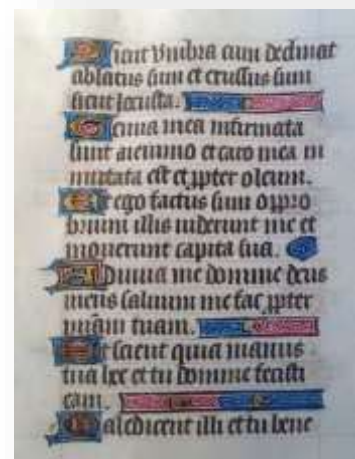 Sicut umbra cum declinat
ablatus sum et excussus sum
sicut locusta.
Genua mea infirmata
sunt a ieiunio et caro mea in
mutata est propter oleum.
Et ego factus sum oppro
brium illis viderunt me et
moverunt capita sua.
Adiuva me domine deus
meus salvum me fac propter
miam tuam.
Et sciant quia manus
tua hec et tu domine fecisti
eam.
Maledicent illi et tu bene